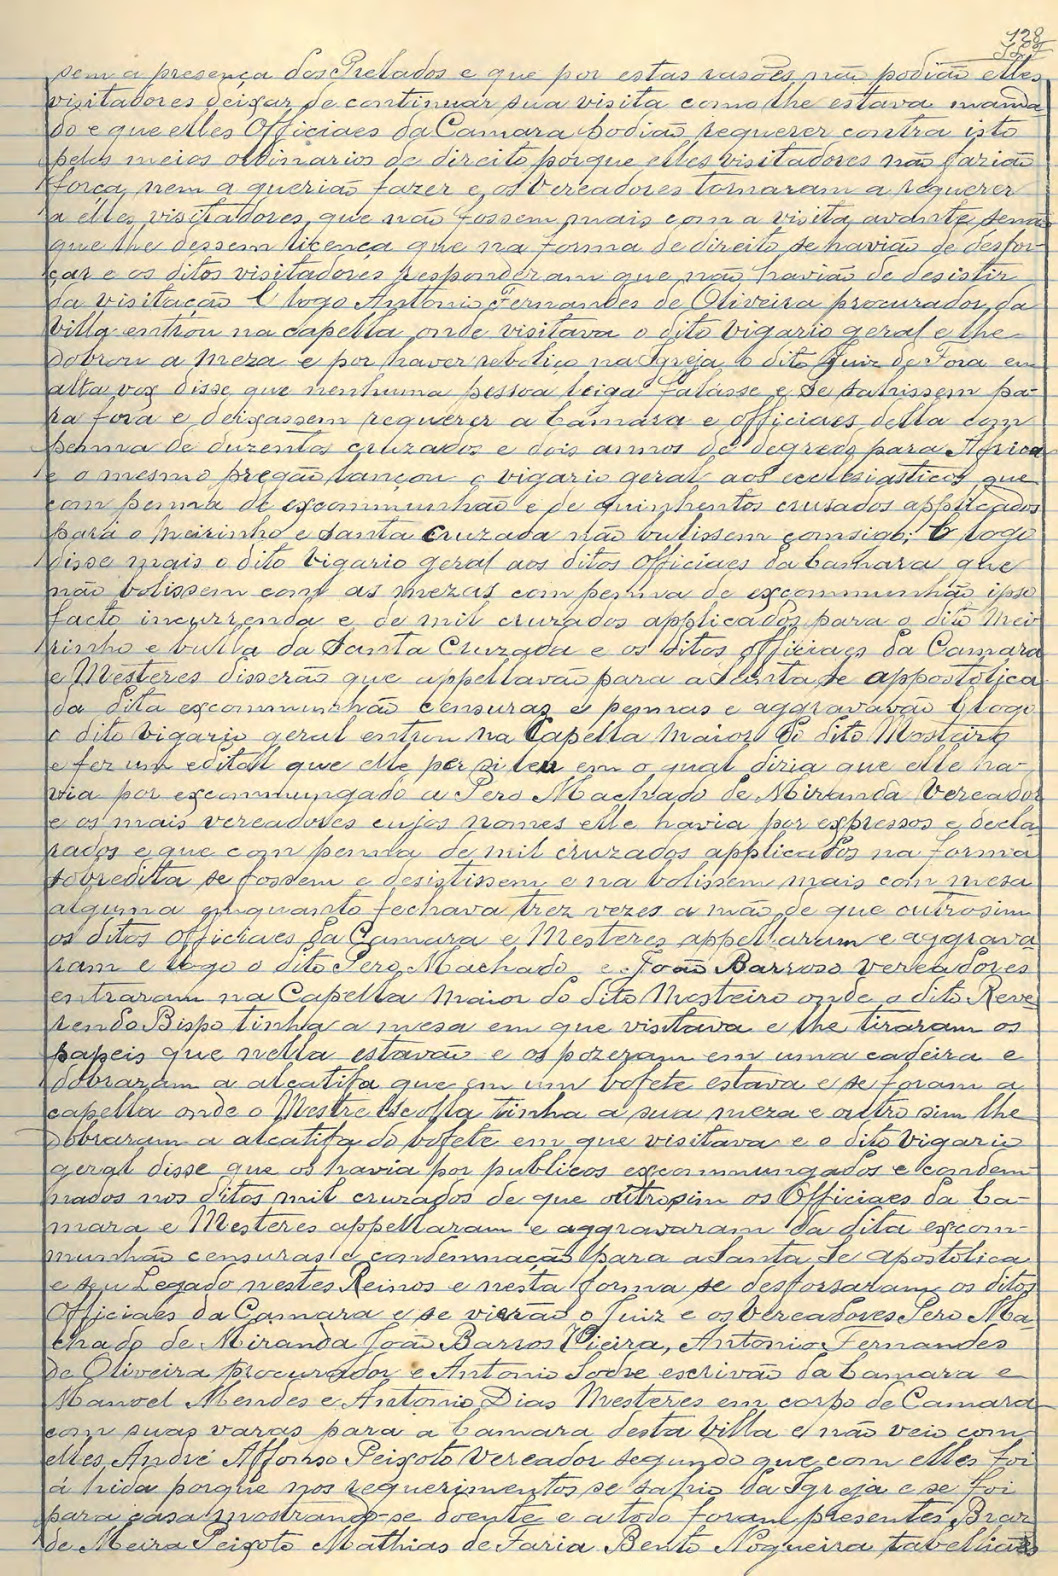 128
sem a presença dos Prelados e que por estas rasões não podião elles
visitadores deixar de continuar sua visita como lhe estava manda
do e que elles Officiaes da Camara podião requerer contra isto
pelos meios ordinarios de direito porque elles visitadores não fazião
força, nem a querião fazer e os Vereadores tornaram a requerer
a elles visitadores, que não fossem mais com a visita avante senão
que lhe dessem licença que na forma de direito se havião de desfor-
çar e os ditos visitadores responderam que não havião de desistir
da visitação E logo Antonio Fernandes de Oliveira procurador da
villa entrou na capella onde visitava o dito vigario geral e lhe
dobrou a meza e por haver reboliço na Igreja o dito Juiz de Fora em
alta voz disse que nenhuma pessoa leiga falasse e se sahissem pa-
ra fora e deixassem requerer a Camara e officiaes della com
penna de duzentos cruzados e dois annos de degredo para Africa
e o mesmo pregão lançou o vigario geral aos ecclesiasticos que
com penna de excommunhão e de quinhentos crusados applicados
para o Meirinho e Santa Cruzada não bulissem comsigo; E logo
disse mais o dito Vigario geral aos ditos Officiaes da Camara que
não bolissem com as mezas com penna de excommunhão ipso
facto incurrenda e de mil cruzados applicados para o dito Mei
rinho e bulla da Santa Cruzada e os ditos officiaes da Camara
e Mesteres disserão que appellavão para a Santa Se appostolica
da dita excommunhão censuras e pennas e aggravavão E logo
o dito Vigario geral entrou na Capella Maior do dito Mosteiro
e fez um edital que elle per si leu em o qual dizia que elle ha-
via por excommungado a Pero Machado de Miranda Vereador
e os mais vereadores cujos nomes elle havia por expressos e decla
rados e que com penna de mil cruzados applicados na forma
sobredita se fossem e desistissem e na bolissem mais com mesa
alguma emquanto fechava trez vezes a mão de que outrosim
os ditos officiaes da Camara e Mesteres appellaram e aggrava
ram e logo o dito Pero Machado e João Barroso Vereadores
entraram na Capella Maior do dito Mosteiro onde o dito Reve
rendo Bispo tinha a mesa em que visitava e lhe tiraram os
papeis que nella estavão e os pozeram em uma cadeira e
dobraram a alcatifa que em um bofete estava e se foram a
capella onde o Mestre Escolla tinha a sua meza e outro sim lhe
dobraram a alcatifa do bofete em que visitava e o dito Vigario
geral disse que os havia por publicos excommungados e condem
nados nos ditos mil cruzados de que outrosim os Officiaes da Ca-
mara e Mesteres appellaram e aggravaram da dita excom-
munhão censuras e condemnação para a Santa Se apostolica
e seu Legado nestes Reinos e nesta forma se desforsaram os ditos
Officiaes da Camara e se vierão o Juiz e os Vereadores Pero Ma-
chado de Miranda João Barros Vieira, Antonio Fernandes
de Oliveira procurador e Antonio Sodre escrivão da Camara e
Manoel Mendes e Antonio Dias Mesteres em corpo de Camara
com suas varas para a Camara desta Villa e não veio com
elles André Affonso Peixoto Vereador segundo que com elles foi
á hida porque nos requerimentos se sahio da Igreja e se foi
para casa mostrando-se doente e a todo foram presentes Braz
de Meira Peixoto Mathias de Faria Bento Nogueira tabelliães